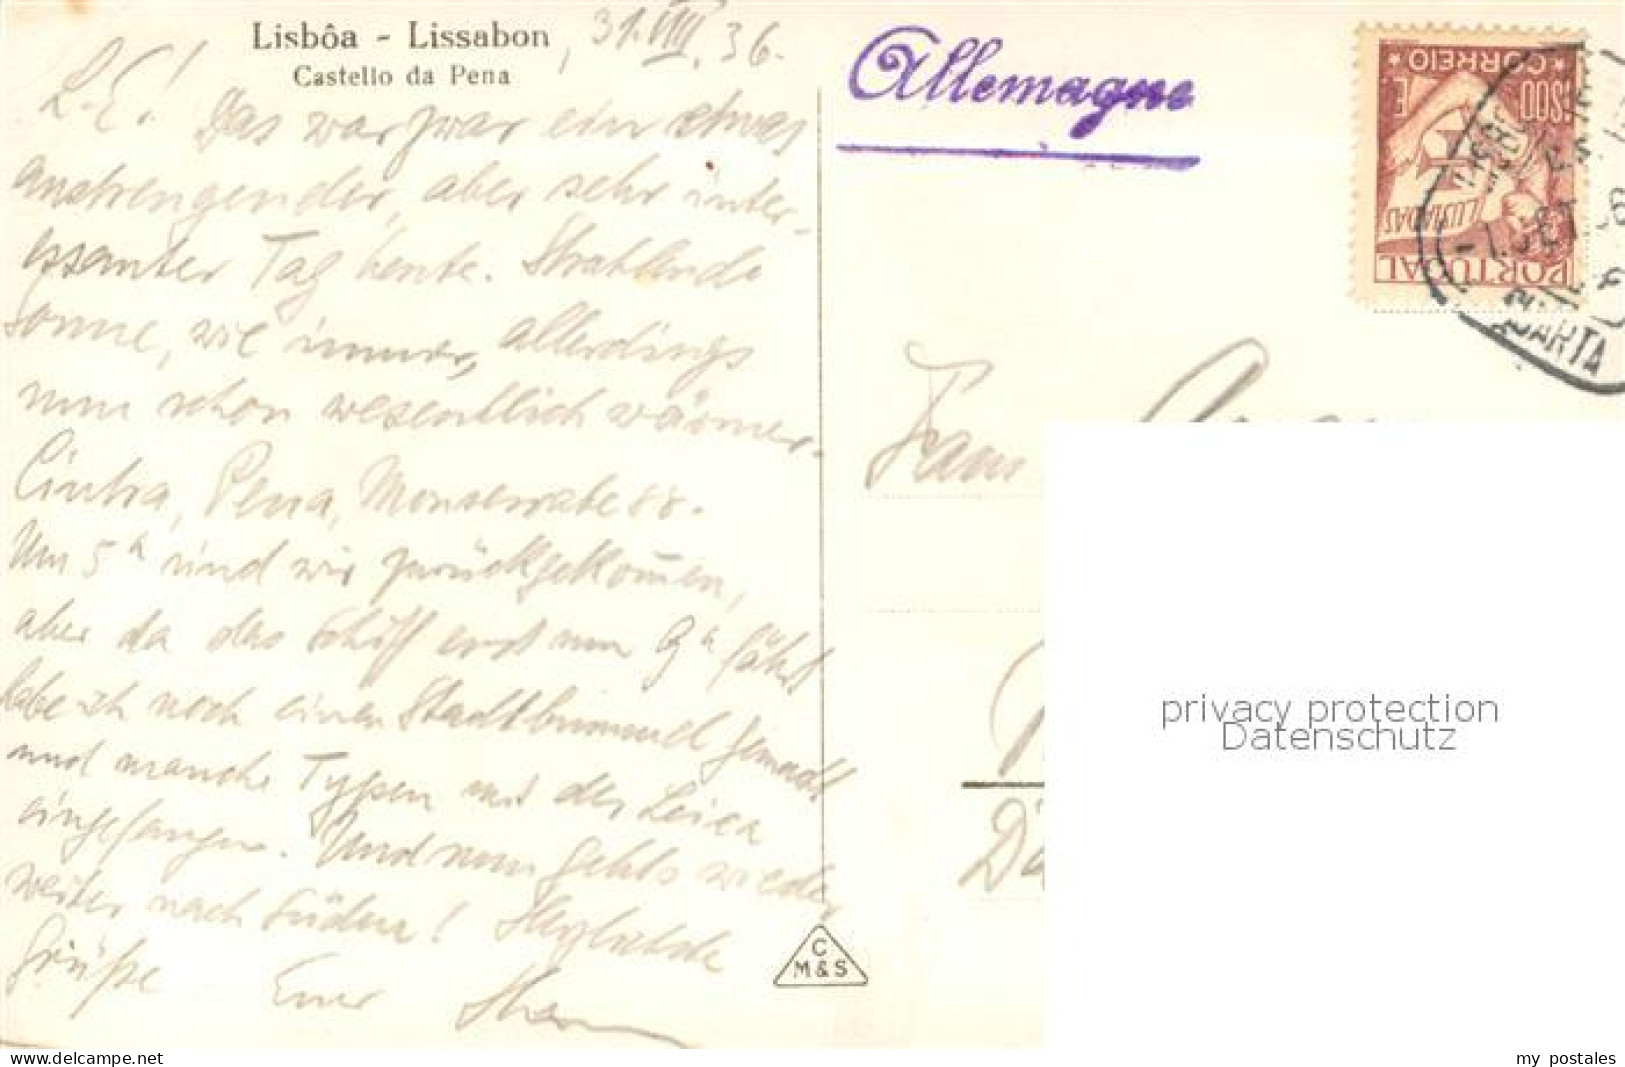 Lisbôa - Lissabon, 31.VIII.36.
Castello da Pena
L. E.! Das war zwar ein etwas
anstrengender, aber sehr inter-
essanter Tag heute. Strahlende
Sonne, wie immer, allerdings
nun schon wesentlich wärmer.
Cintra, Pena, Monserrate
Um 5h sind wir zurückgekommen,
aber da das Schiff erst um 9h fährt
habe ich noch einen Stadtbummel gemacht
und manche Typen mit der Leica
eingefangen. Und nun gehts wieder
weiter nach Süden! Herzlichste
Grüße Euer
Allemagne
CORREIO
1$00 E.
LUSIADAS
PORTUGAL
-1.SET 36
QUARTA
Frau
C
M&S
privacy protection
Datenschutz
www.delcampe.net
my postales